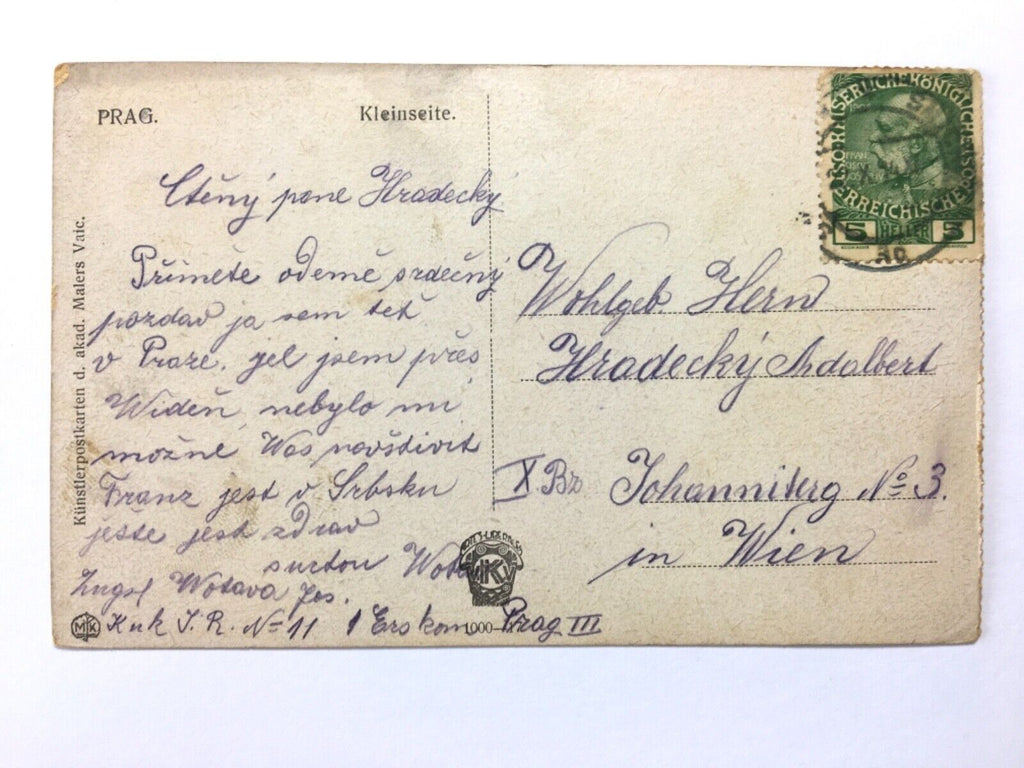 PRAG. Kleinseite.
Ctěný pane Hradecký
Přimete odemě srdečný
pozdav ja sem teť
v Praze. jel jsem přes
Wideň, nebylo mi
možné Was navštivit
Franz jest v Srbsku
ješte jest zdrav
Wotava
Zugsf Wotava Jos.
Kuk I. R. No 11 1 Ers kom Prag III
Künstlerpostkarten d. akad. Malers Vaic.
MK
1000
KAISERLICHE KÖNIGLICHE
ÖSTERREICHISCHE
5 HELLER 5
Wohlgeb. Hern
Hradecký Adalbert
X Bz Johanniterg No 3.
in Wien